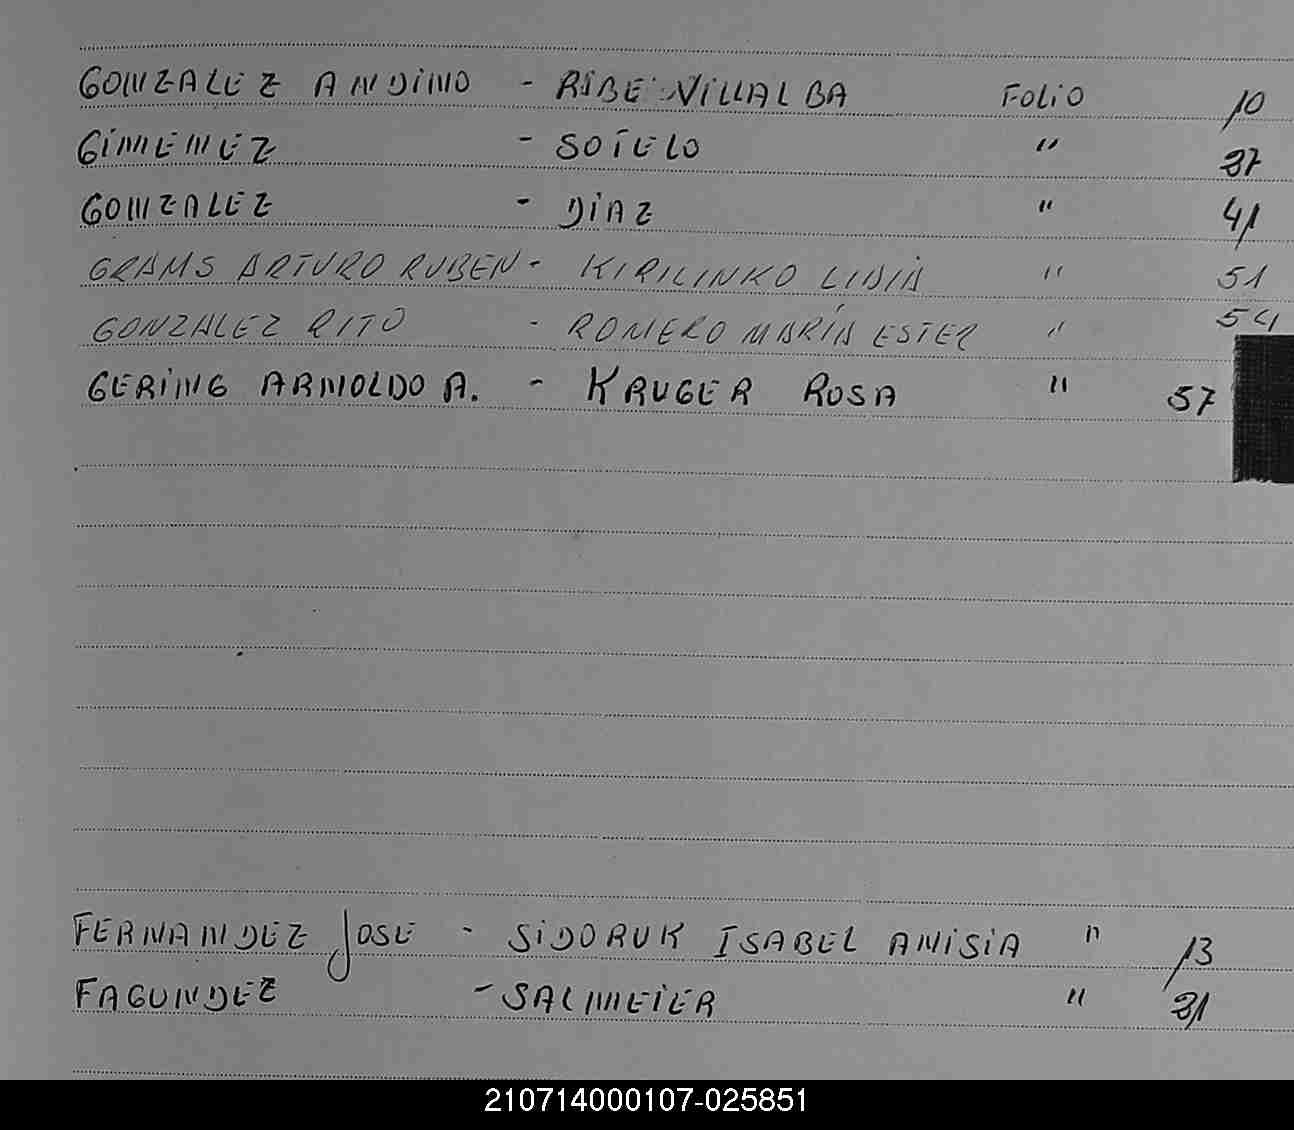 GONZALEZ ANDINO - RIBE VILLALBA FOLIO 10
GIMENEZ - SOTELO " 37
GONZALEZ - DIAZ " 41
GRAMS ARTURO RUBEN - KIRILINKO LIDIA " 51
GONZALEZ RITO - ROMERO MARÍA ESTER " 54
GERING ARNOLDO A. - KRUGER ROSA " 57
FERNANDEZ JOSE - SIDORUK ISABEL ANISIA " 13
FAGUNDEZ - SALMEIER " 31
210714000107-025851